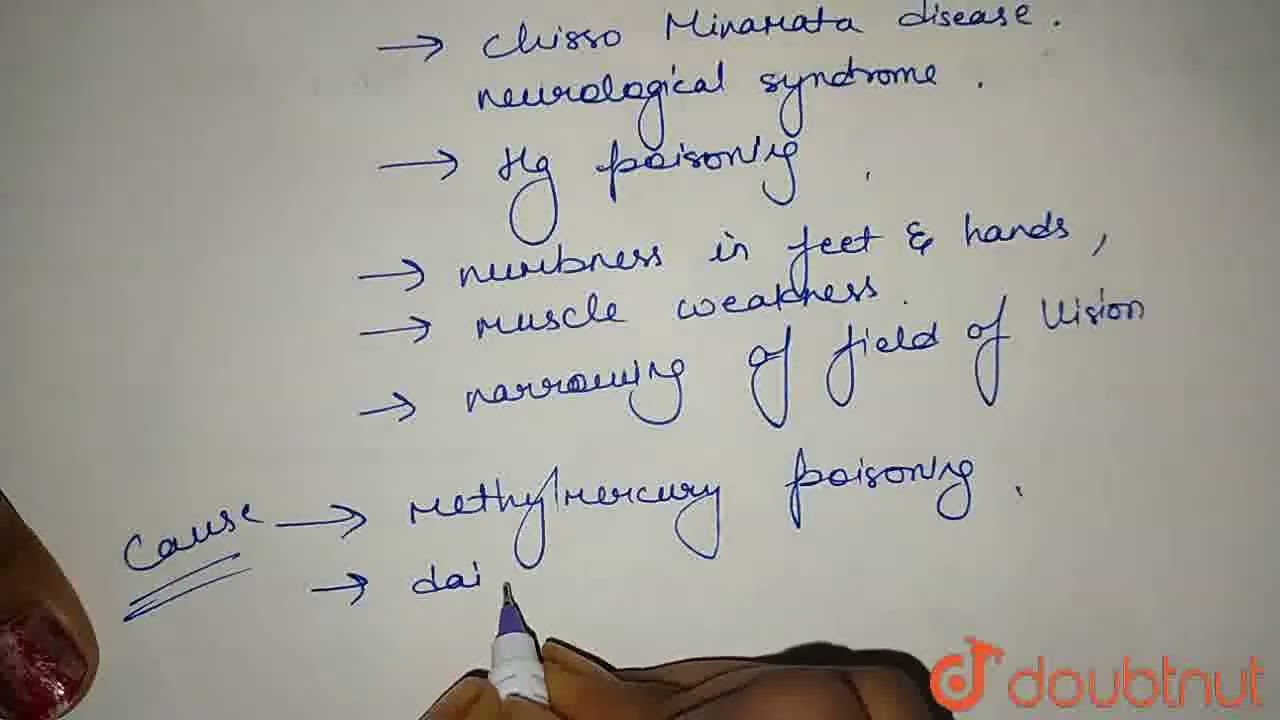 → Chisso Minamata disease.
neurological syndrome.
→ Hg poisoning.
→ numbness in feet & hands,
→ muscle weakness.
→ narrowing of field of vision
Cause → Methylmercury poisoning.
→ dai
doubtnut